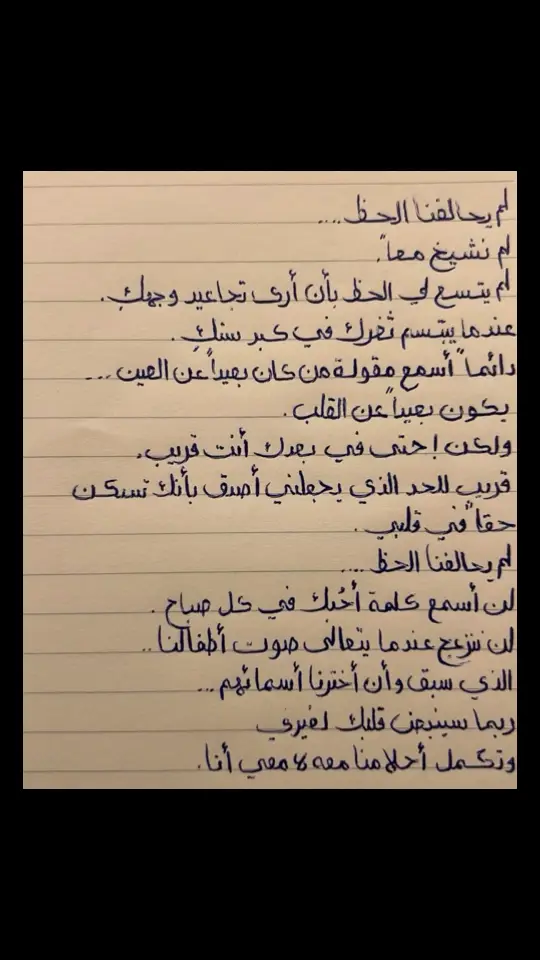 لم يحالفنا الحظ....
لم نشيخ معاً.
لم يتسع لي الحظ بأن أرى تجاعيد وجهكِ.
عندما يبتسم ثغرك في كبر سنكِ.
دائماً أسمع مقولة من كان بعيداً عن العين ...
يكون بعيداً عن القلب.
ولكن! حتى في بعدك أنت قريب.
قريب للحد الذي يجعلني أصدق بأنك تسكن
حقاً في قلبي.
لم يحالفنا الحظ....
لن أسمع كلمة أحُبك في كل صباح.
لن ننزعج عندما يتعالى صوت أطفالنا..
الذي سبق وأن أخترنا أسمائهم...
ربما سينبض قلبك لغيري
وتكمل أحلامنا معه لا معي أنا.